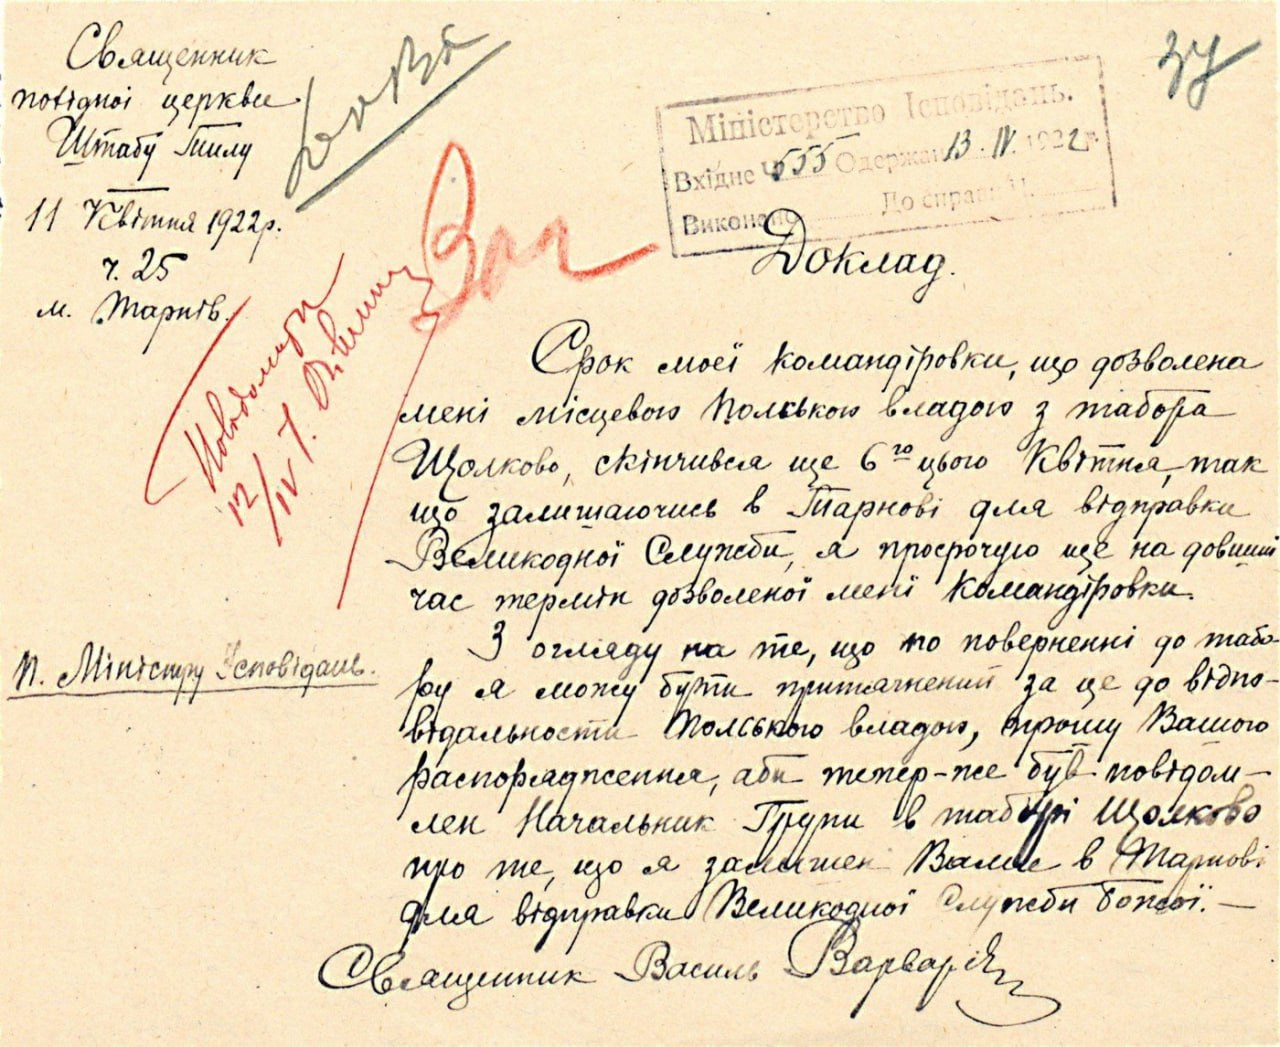 Священник
повідної церкви
Штабу Тилу
11 Квітня 1922р.
ч. 25
м. Тарнів.
37
Міністерство Ісповідань.
Вхідне Ч. 555 Одержано 13. IV. 1922 г.
Виконано До справи Ч.
Доклад.
Повідомити
12/IV
Срок моєї командіровки, що дозволена
мені місцевою Польською владою з табора
Щолково, скінчився ще 6го цього Квітня, так
що залишаючись в Тарнові для відправки
Великодної Служби, я просрочую ще на довший
час термін дозволеної мені командіровки.
З огляду на те, що по поверненні до табо-
ру я можу бути притягнений за це до відпо-
відальности Польською владою, прошу Вашого
распорядження, аби тепер-же був повідом-
лен Начальник Групи в таборі Щолково
про те, що я залишен Вами в Тарнові
для відправки Великодної Служби Божої. —
п. Міністру Ісповідань.
Священник Василь